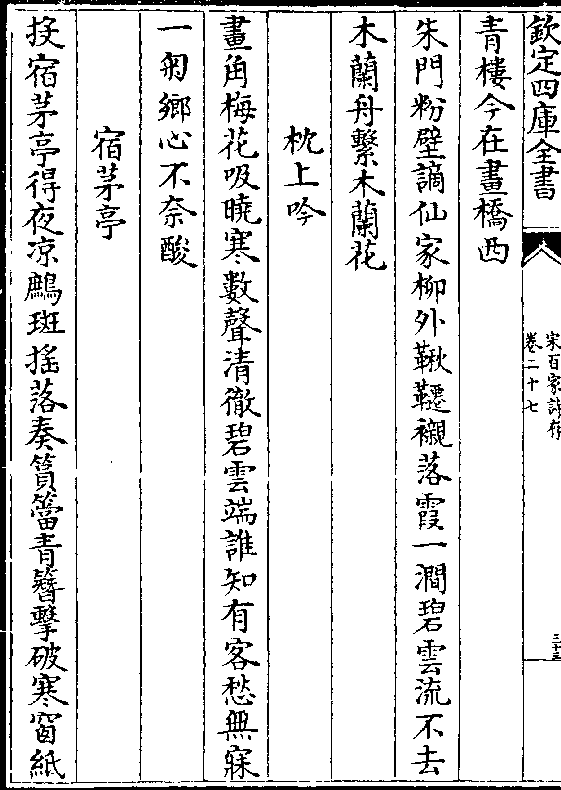 欽定四庫全書
宋百家詩存
卷二十七
三十三
青樓今在畫橋西
朱門粉壁謫仙家柳外鞦韆襯落霞一澗碧雲流不去
木蘭舟繫木蘭花
枕上吟
畫角梅花吸曉寒數聲清徹碧雲端誰知有客愁無寐
一夠鄉心不奈酸
宿茅亭
投宿茅亭得夜凉鷓斑搖落奏篔簹青簪擊破寒窗紙